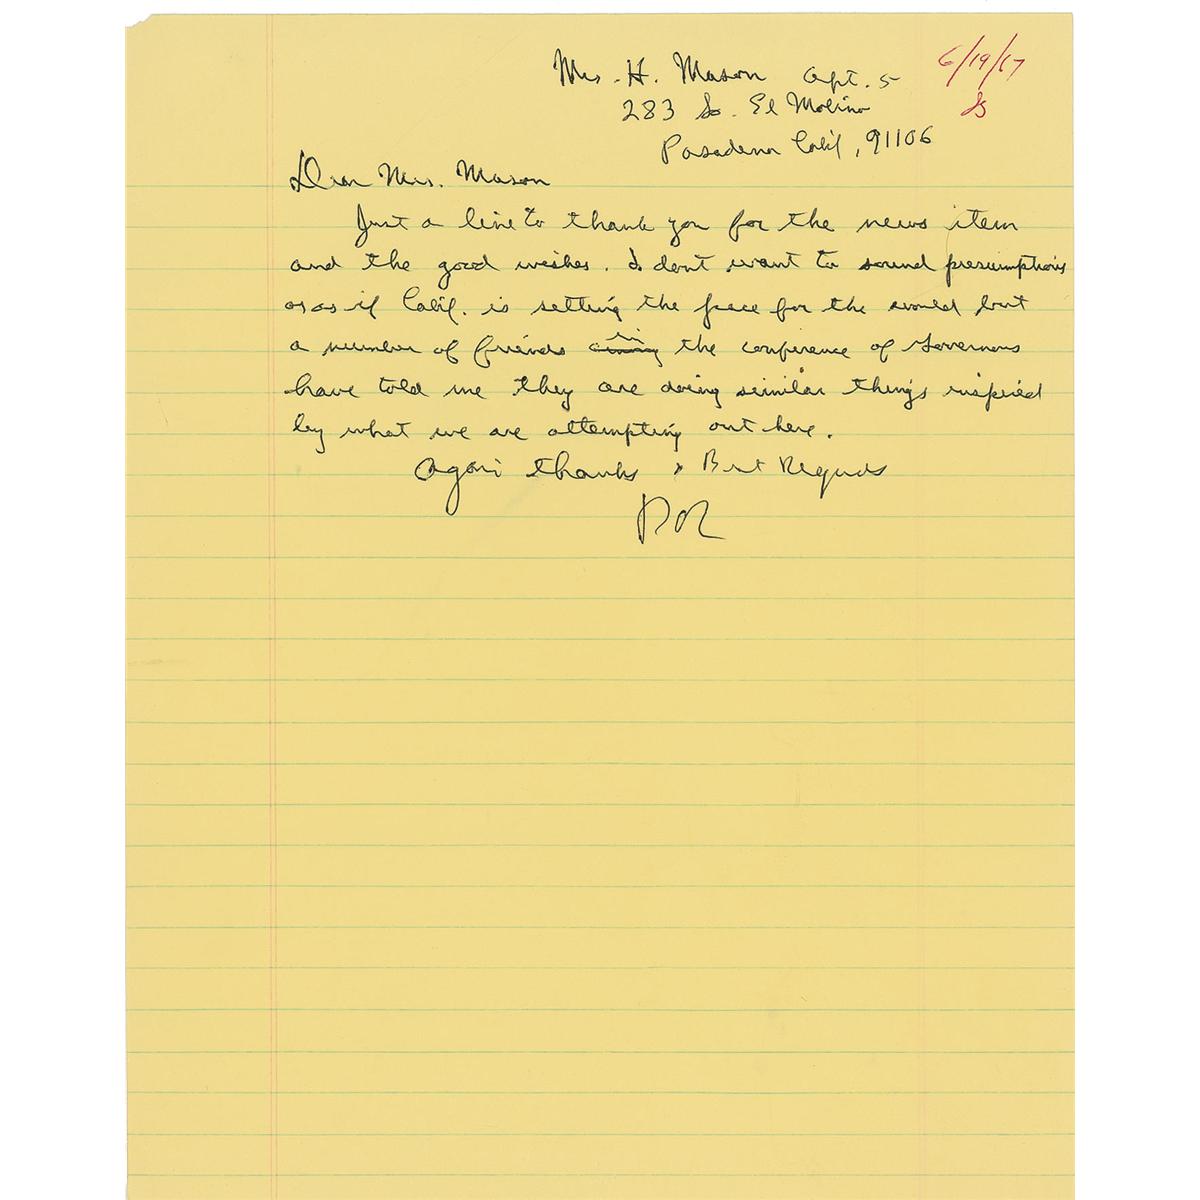 Mrs. H. Mason Apt. 5
6/19/67
283 So. El Molino
Pasadena Calif, 91106
Dear Mrs. Mason
Just a line to thank you for the news item
and the good wishes. I don't want to sound presumptious
or as if Calif. is setting the pace for the would but
a number of friends in the conference of Governors
have told me they are doing similar things inspired
by what we are attempting out here.
Again thanks & Best Regards
RR